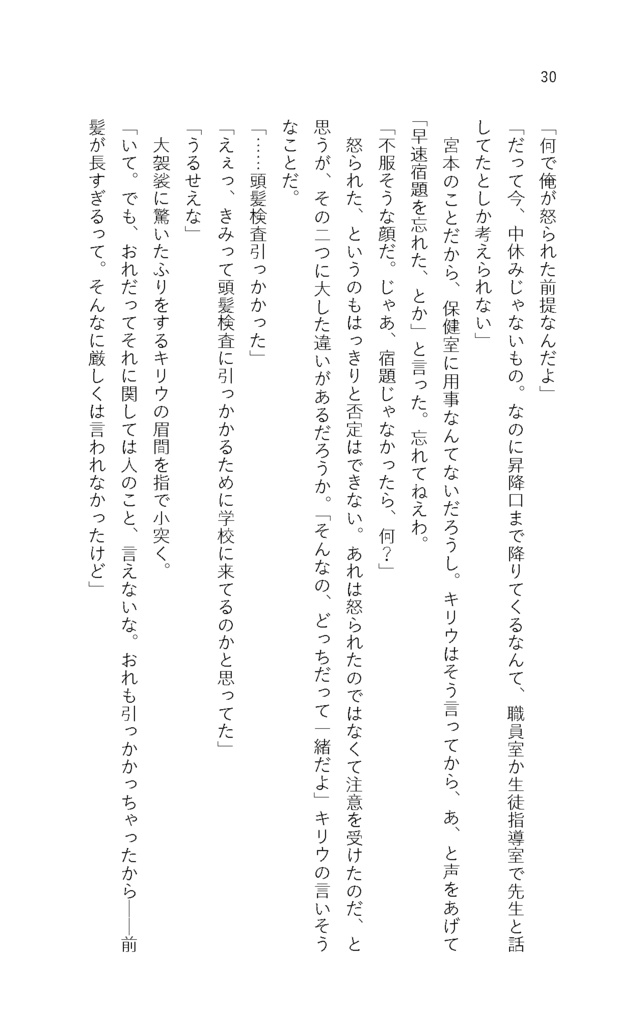 30
「何で俺が怒られた前提なんだよ」
「だって今、中休みじゃないもの。なのに昇降口まで降りてくるなんて、職員室か生徒指導室で先生と話
してたとしか考えられない」
　宮本のことだから、保健室に用事なんてないだろうし。キリウはそう言ってから、あ、と声をあげて
「早速宿題を忘れた、とか」と言った。忘れてねえわ。
「不服そうな顔だ。じゃあ、宿題じゃなかったら、何？」
　怒られた、というのもはっきりと否定はできない。あれは怒られたのではなくて注意を受けたのだ、と
思うが、その二つに大した違いがあるだろうか。「そんなの、どっちだって一緒だよ」キリウの言いそう
なことだ。
「……頭髪検査引っかかった」
「えぇっ、きみって頭髪検査に引っかかるために学校に来てるのかと思ってた」
「うるせえな」
　大袈裟に驚いたふりをするキリウの眉間を指で小突く。
「いて。でも、おれだってそれに関しては人のこと、言えないな。おれも引っかかっちゃったから――前
髪が長すぎるって。そんなに厳しくは言われなかったけど」